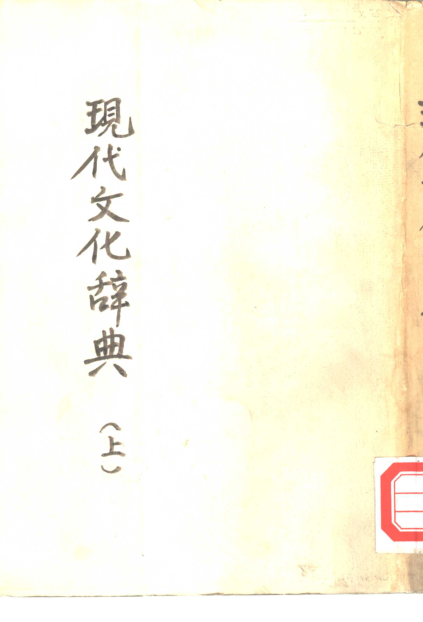 現代文化辞典
（上）